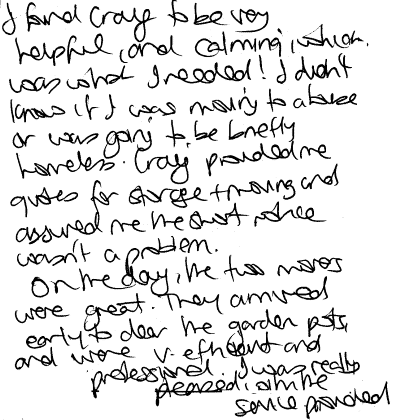 I found Craig to be very
helpful, and calming, which
was what I needed! I didn't
know if I was moving to a house
or was going to be briefly
homeless. Craig provided me
quotes for storage + moving and
assured me the short notice
wasn't a problem.
On the day, the two movers
were great. They arrived
early to clear the garden pots,
and were v. efficient and
professional. I was really
pleased with the
service provided